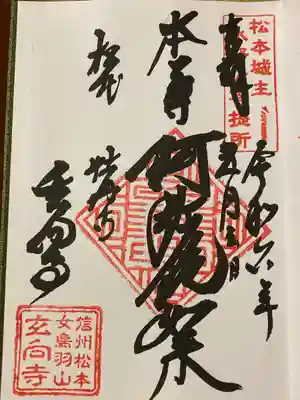 松本城主
提所
奉拝
令和六年
五月
本尊
阿弥陀如来
玄向寺
信州松本
女鳥羽山
玄向寺